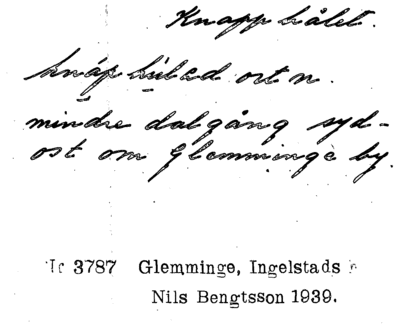 Knapphålet.
knáphúlad ortn.
mindre dalgång syd-
ost om Glemminge by.
3787 Glemminge, Ingelstads
Nils Bengtsson 1939.